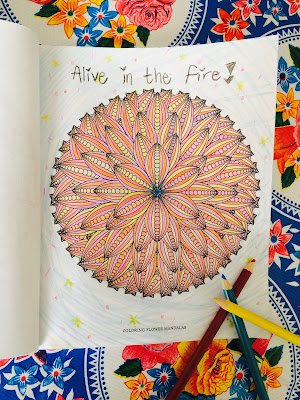 Alive in the fire!
COLORING FLOWER MANDALAS